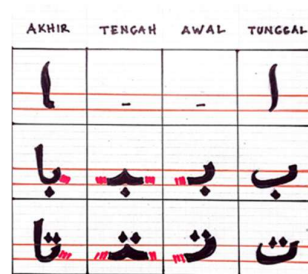 AKHIR TENGAH AWAL TUNGGAL
ا - - ا
با ـبـ بـ ب
تا ـتـ تـ ت